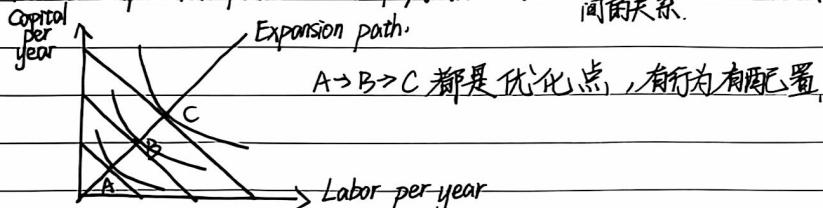 间的关系.
Capital
per
year
Expansion path.
A→B→C 都是优化点,有行为有配置
C
B
A
Labor per year